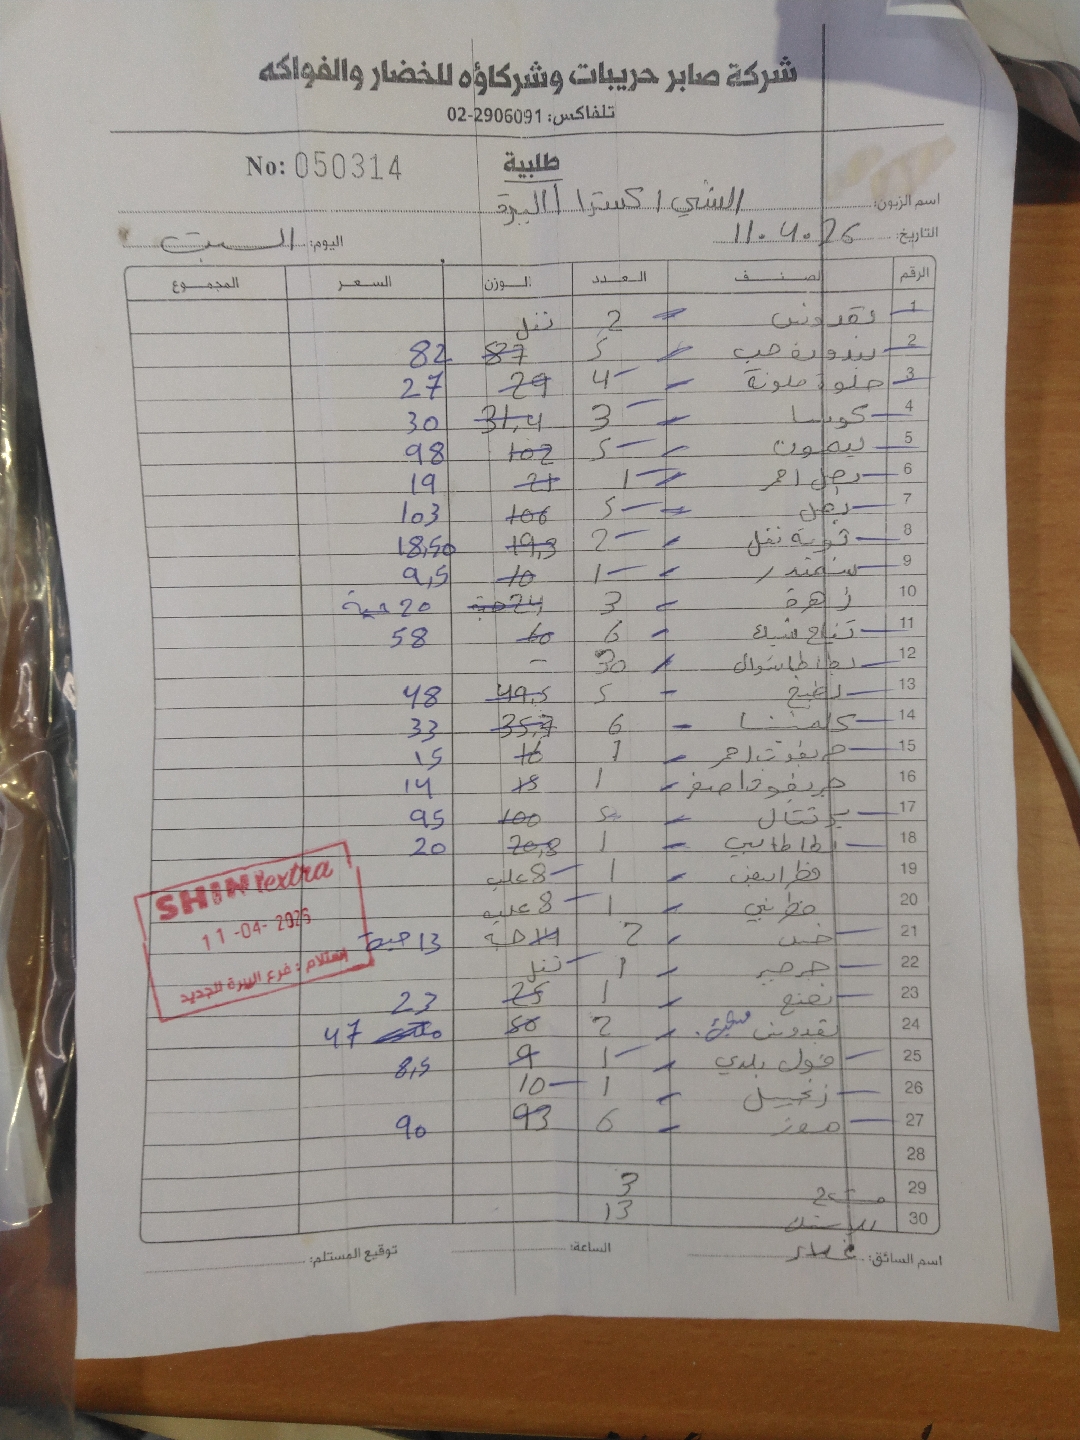 شركة صابر حريبات وشركاؤه للخضار والفواكه
تلفاكس: 02-2906091
No: 050314
طلبية
اسم الزبون: الشني اكسترا البيرة
التاريخ: 11.4.26
اليوم: السبت
الرقم الصنف العدد الوزن السعر المجموع
1 بقدونس 2
2 بندورة حب 5 87 82
3 حلوة ملونة 4 29 27
4 كوسا 3 31,4 30
5 ليمون 5 102 98
6 بصل احمر 1 21 19
7 بصل 5 106 103
8 2 19,3 18,50
9 شمندر 1 10 9,5
10 زهرة 3 24 حبة 20 حبة
11 تفاح 6 60 58
12 بطاطا شوال 30 -
13 بطيخ 5 49,5 48
14 كلمنتينا 6 35,7 33
15 جريفوت احمر 1 16 15
16 جريفوت اصفر 1 15 14
17 برتقال 5 100 95
18 1 20,8 20
19 فطر 1 8 علب
20 فطر بني 1 8 علب
21 خس 2 حبة 13 حبة
22 جرجير 1
23 نعنع 1 25 23
24 بقدونس 2 50 47
25 فول بلدي 1 9 8,5
26 زنجبيل 1 10
27 موز 6 93 90
28
29 3
30 13
اسم السائق:
الساعة:
توقيع المستلم:
SHINI extra
11-04-2026
استلام : فرع البيرة الجديد